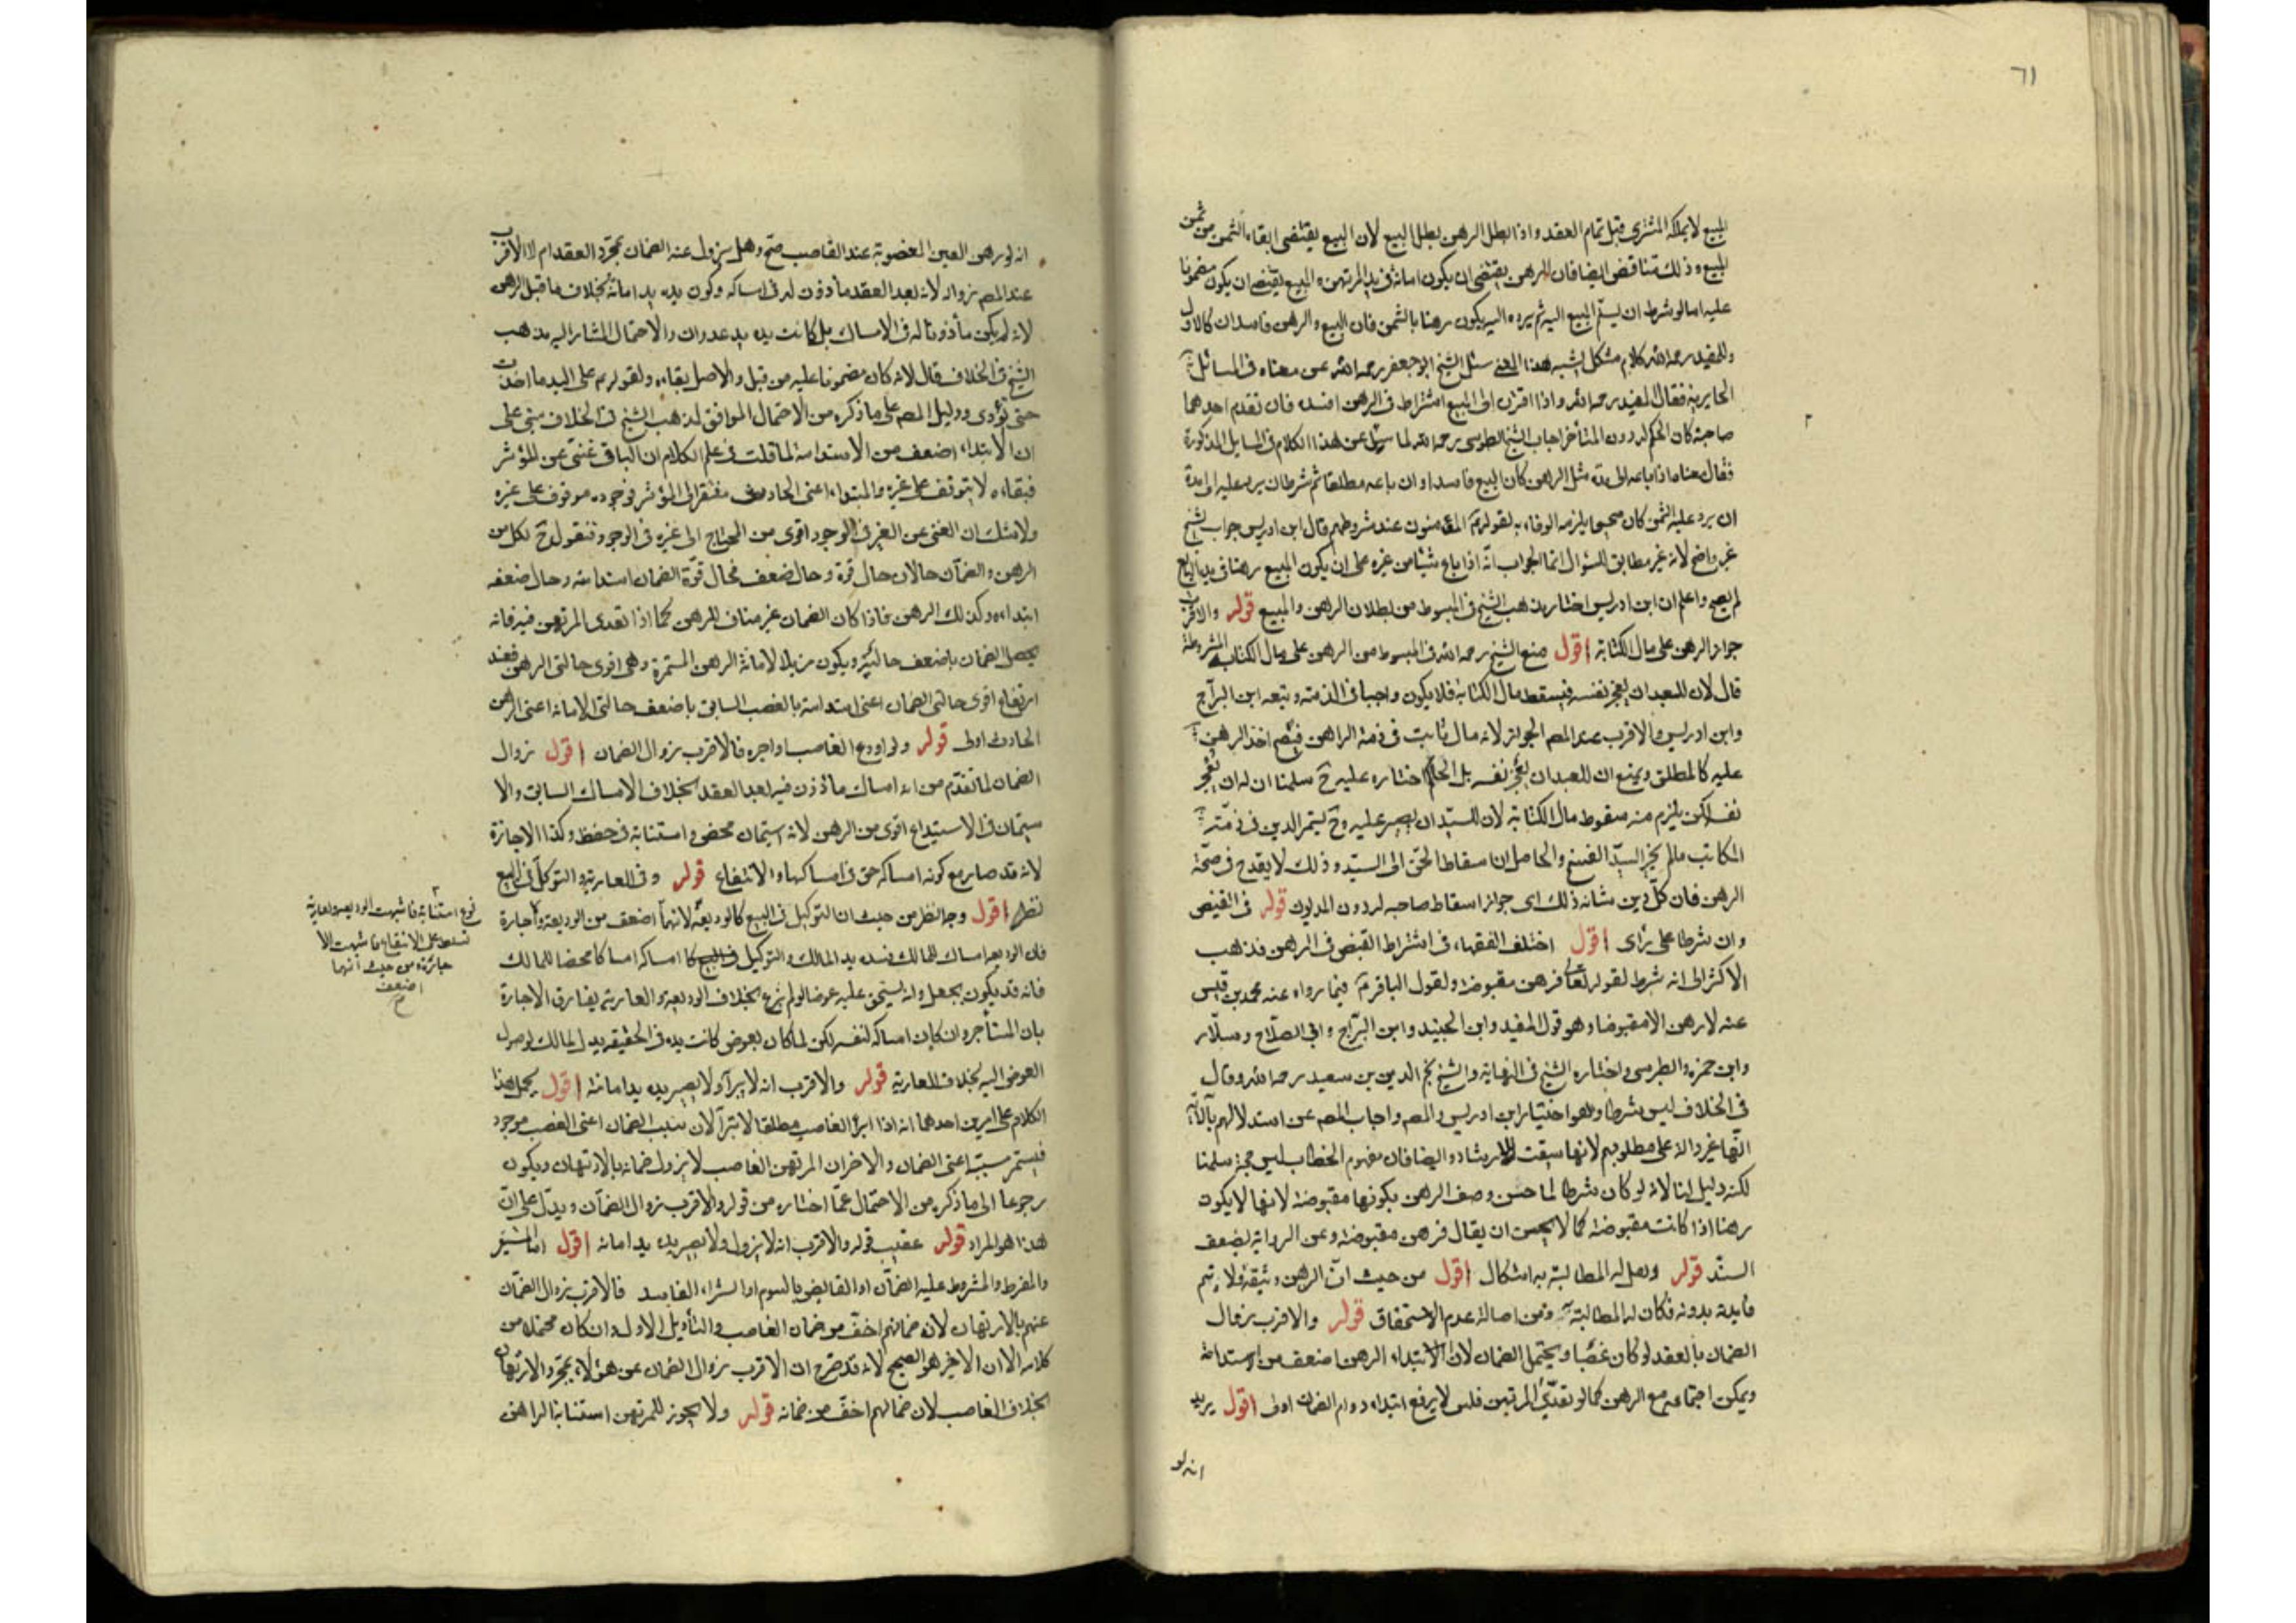 ٦١
المبيع لا يملكه المشتري قبل تمام العقد واذا بطل الرهن بطل البيع لان البيع يقتضي ايفاء الثمن من ثمن
المبيع وذلك متناقض ايضا فان الرهن يقتضي ان يكون امانة في يد المرتهن والبيع يقتضي ان يكون مضمونا
عليه اما لو شرط ان يسلم المبيع اليه ثم يرده اليه يكون رهنا بالثمن فان البيع والرهن فاسدان كالاول
وللمفيد رحمه الله كلام مشكل يشبه هذا المعنى سئل الشيخ ابو جعفر رحمه الله عن معناه في المسائل
الحايرية فقال المفيد رحمه الله واذا اقترن الى البيع اشتراط في الرهن افسده فان تقدم احدهما
صاحبه كان الحكم له دون المتأخر اجاب الشيخ الطوسي رحمه الله لما سئل عن هذا الكلام في المسايل المذكورة
فقال معناه اذا باعه الى مدة مثل الرهن كان البيع فاسدا وان باعه مطلقا ثم شرط ان يرد عليه الى مدة
ان يرد عليه الثمن كان صحيحا يلزمه الوفاء به لقولهم المؤمنون عند شروطهم قال ابن ادريس جواب الشيخ
غير واضح لانه غير مطابق للسؤال انما الجواب انه اذا باع شيئا من غيره على ان يكون المبيع رهنا في يد البايع
لم يصح واعلم ان ابن ادريس اختار مذهب الشيخ في المبسوط من بطلان الرهن والبيع قوله والاقرب
جواز الرهن على مال الكتابة اقول منع الشيخ رحمه الله في المبسوط من الرهن على مال الكتابة المشروطة
قال لان للعبد ان يعجز نفسه فيسقط مال الكتابة فلا يكون واجبا في الذمة وتبعه ابن البراج
وابن ادريس والاقرب عند المصم الجواز لانه مال ثابت في ذمة الراهن فيصح اخذ الرهن
عليه كالمطلق ويمنع ان للعبد ان يعجز نفسه بل الحاكم اختاره عليه ح سلمنا ان له ان يعجز
نفسه لكن يلزم منه سقوط مال الكتابة لان للسيد ان يصبر عليه وح يستمر الدين في ذمته
المكاتب ما لم يختر السيد الفسخ والحاصل ان اسقاط الحق الى السيد وذلك لا يقدح في صحة
الرهن فان كل دين شانه ذلك اى جواز اسقاط صاحبه له دون المديون قوله في القبض
وان شرطا على رأى اقول اختلف الفقهاء في اشتراط القبض في الرهن فذهب
الاكثر الى انه شرط لقوله تعالى فرهن مقبوضة ولقول الباقر ع فيما رواه عنه محمد بن قيس
عنه لا رهن الا مقبوضا وهو قول المفيد وابن الجنيد وابن البراج وابى الصلاح وسلار
وابن حمزة والطبرسي واختاره الشيخ في النهاية والشيخ نجم الدين بن سعيد رحمه الله وقال
في الخلاف ليس شرطا وهو اختيار ابن ادريس والمصم واجاب المصم عن استدلالهم بالآية
انها غير دالة على مطلوبهم لانها سيقت للارشاد وايضا فان مفهوم الخطاب ليس حجة سلمنا
لكنه دليل لنا لانه لو كان شرطا لما حسن وصف الرهن بكونها مقبوضة لانها لا يكون
رهنا اذا كانت مقبوضة كما لا يحسن ان يقال فرهن مقبوضة وعن الرواية بضعف
السند قوله وهل له المطالبة به اشكال اقول من حيث ان الرهن وثيقة ولا يتم
فايدته بدونه فكان له المطالبة ومن اصالة عدم الاستحقاق قوله والاقرب زوال
الضمان بالعقد لو كان غصبا ويحتمل الضمان لان الابتداء الرهن اضعف من استدامته
ويمكن اجتماعه مع الرهن كما لو تعدى المرتهن فلس لا يرفع ابتداءه دوام الضمان اولى اقول يريد
انه لو
انه لو رهن العين المغضوبة عند الغاصب صح وهل يزول عنه الضمان بمجرد العقد ام لا الاقرب
عند المصم زواله لانه بعد العقد مأذون له في امساكه وكون يده يد امانة بخلاف ما قبل الرهن
لانه لم يكن مأذونا له في الامساك بل كانت يده يد عدوان والاحتمال المشار اليه مذهب
الشيخ في الخلاف قال لانه كان مضمونا عليه من قبل والاصل بقاءه ولقوله م على اليد ما اخذت
حتى تؤدى ودليل المصم على ما ذكره من الاحتمال الموافق لمذهب الشيخ في الخلاف مبنى على
ان الابتداء اضعف من الاستدامة لما قلت في علم الكلام ان الباقي غنى عن المؤثر
فبقاءه لا يتوقف على غيره والمبتدا اعنى الحادث مفتقر الى المؤثر فوجوده موقوف على غيره
ولا شك ان الغنى عن الغير في الوجود اقوى من المحتاج الى غيره في الوجود فنقول ح لكل من
الرهن والضمان حالان حال قوة وحال ضعف فحال قوة الضمان استدامته وحال ضعفه
ابتداءه وكذلك الرهن فاذا كان الضمان غير مناف للرهن كما اذا تعدى المرتهن فيه فانه
يحصل الضمان باضعف حالتيه ويكون مزيلا لامانة الرهن المستمرة وهى اقوى حالتى الرهن فعند
ارتفاع اقوى حالتى الضمان اعنى استدامته بالغصب السابق باضعف حالتى الامانة اعنى الرهن
الحادث اولى قوله ولو اودع الغاصب او اجره فالاقرب زوال الضمان اقول زوال
الضمان لما تقدم من انه امساك مأذون فيه بعد العقد بخلاف الامساك السابق والا
ستيمان في الاستيداع اقوى من الرهن لانه استيمان محض واستنابة في حفظ وكذا الاجازة
لانه قد صار مع كونه امساكه حق في امساكها والانتفاع قوله وفي العارية والتوكل في البيع
نظر اقول وجه النظر من حيث ان التوكيل في البيع كالوديعة لانهما اضعف من الوديعة والاجارة
فان الوديعه امساك للمالك فيده يد المالك والتوكيل في البيع كا امساكه امساكا محضا للمالك
فانه قد يكون بجعل وله يستحق عليه عوضا لو لم يتبرع بخلاف الوديعة والعارية يفارق الاجارة
بان المستأجر وان كان امساكه لنفسه لكن لما كان بعوض كانت يده في الحقيقه يد المالك لوصول
العوض اليه بخلاف العارية قوله والاقرب انه لا يبرأ ولا يصير يده يد امانة اقول يحمل هذا
الكلام على امرين احدهما انه اذا ابرأ الغاصب مطلقا لا تبرأ لان سبب الضمان اعنى الغصب موجود
فيستمر مسببه اعنى الضمان والاخر ان المرتهن الغاصب لا يزول ضمانه بالارتهان ويكون
رجوعا الى ما ذكره من الاحتمال عما اختاره من قوله والاقرب زوال الضمان ويدل على ان
هذا هو المراد قوله عقيب قوله والاقرب انه لا يزول ولا يصير يده يد امانة اقول اما المستعير
والمفرط والمشروط عليه الضمان او القابض بالسوم او الشراء الفاسد فالاقرب زوال الضمان
عنهم بالارتهان لان ضمانهم اخف من ضمان الغاصب والتأويل الاول وان كان محتملا من
كلامه الا ان الاخير هو الصحيح لانه قد صرح ان الاقرب زوال الضمان عن هؤلاء بمجرد الارتهان
بخلاف الغاصب لان ضمانهم اخف من ضمانه قوله ولا يجوز للمرتهن استنابة الراهن
نوع استنابة فاشبهت الوديعه والعارية
تسلط على الانتفاع فاشبهت الا
جارة ومن حيث انهما
اضعف